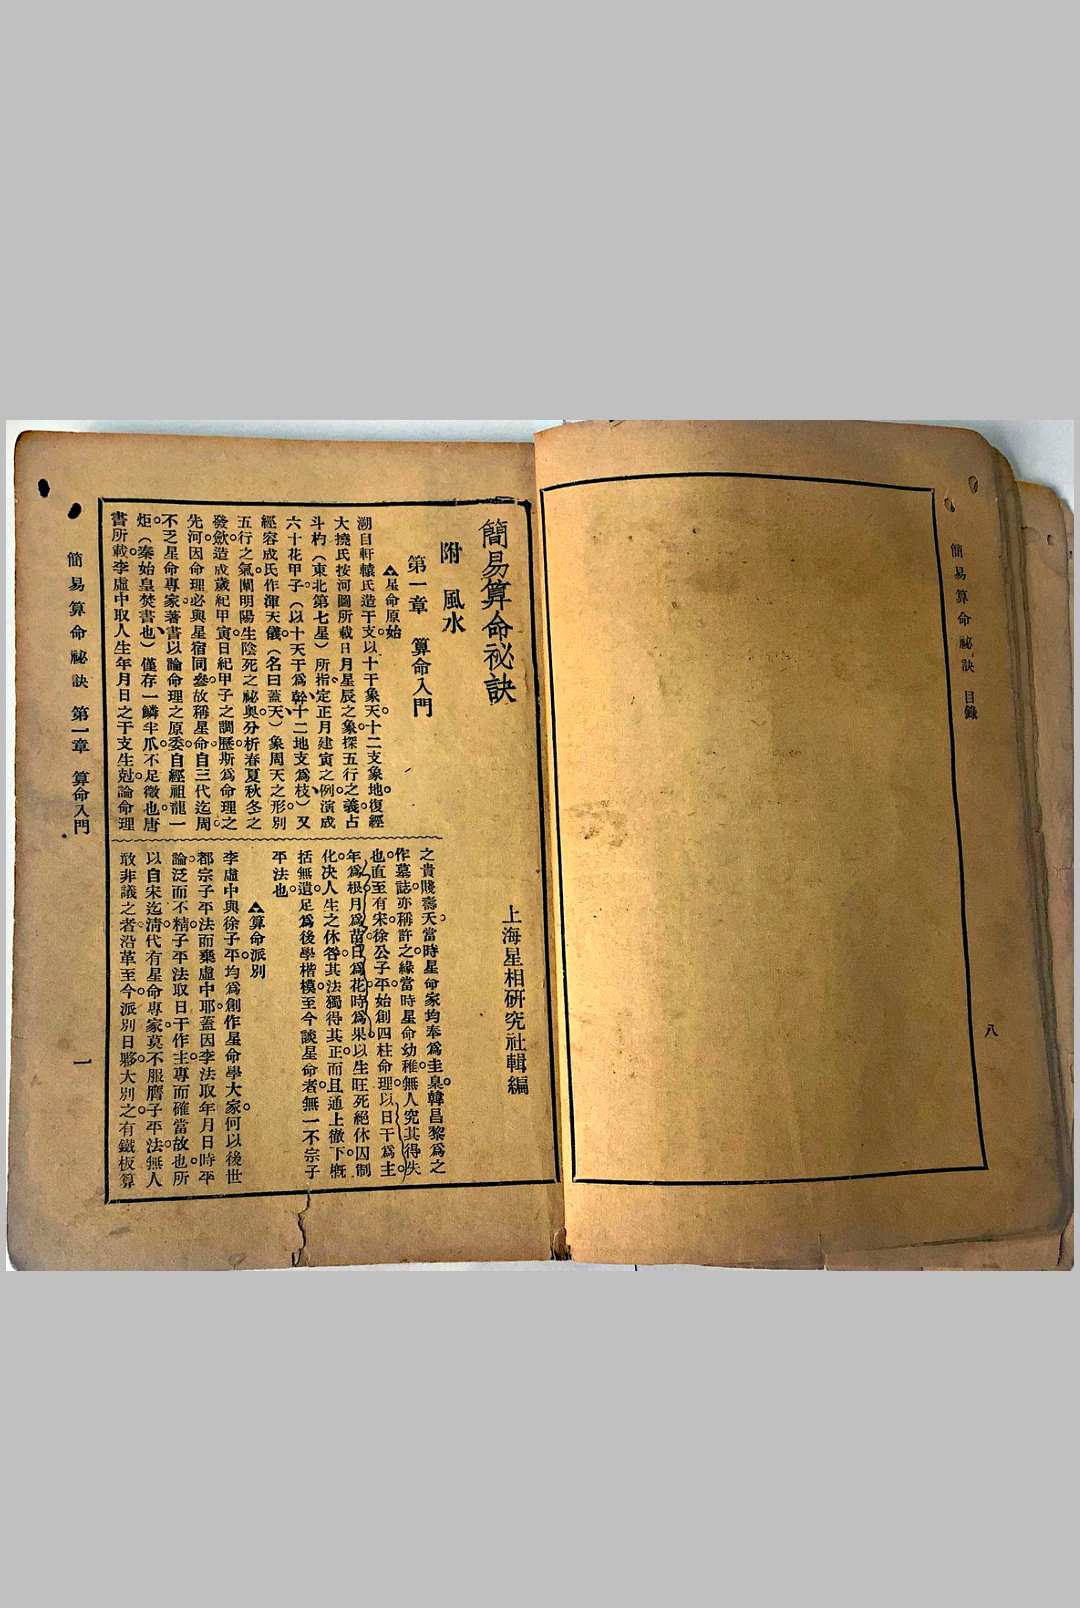 簡易算命祕訣 目錄
八
簡易算命祕訣
上海星相研究社輯編
附 風水
第一章 算命入門
▲星命原始
溯自軒轅氏造干支以十干象天十二支象地。復經
大撓氏按河圖所載日月星辰之象。探五行之義。占
斗杓(東北第七星)所指。定正月建寅之例。演成
六十花甲子(以十天干爲幹、十二地支爲枝)又
經容成氏作渾天儀(名曰蓋天)象周天之形。別
五行之氣。闡明陽生陰死之祕奧。分析春夏秋冬之
發斂。造成歲紀甲寅日紀甲子之調歷。斯爲命理之
先河。因命理必與星宿同參。故稱星命。自三代迄周。
不乏星命專家。著書以論命理之原委。自經祖龍一
炬。(秦始皇焚書也)僅存一鱗半爪。不足徵也。唐
書所載。李虛中取人生年月日之干支生尅。論命理
之貴賤壽夭。當時星命家均奉爲圭臬。韓昌黎爲之
作墓誌。亦稱許之。緣當時星命幼稚。無人究其得失
也。直至有宋徐公子平。始創四柱命理。以日干爲主。
年爲根。月爲苗。日爲花。時爲果。以生旺死絕休囚制
化。决人生之休咎。其法獨得其正。而且通上徹下。概
括無遺。足爲後學楷模。至今談星命者。無一不宗子
平法也。
▲算命派別
李虛中與徐子平。均爲創作星命學大家。何以後世
都宗子平法而棄虛中耶。蓋因李法取年月日時平
論。泛而不精。子平法取日干作主。專而確當故也。所
以自宋迄清。代有星命專家。莫不服膺子平法。無人
敢非議之者。沿革至今。派別日夥。大別之。有鐵板算
簡易算命祕訣 第一章 算命入門
一